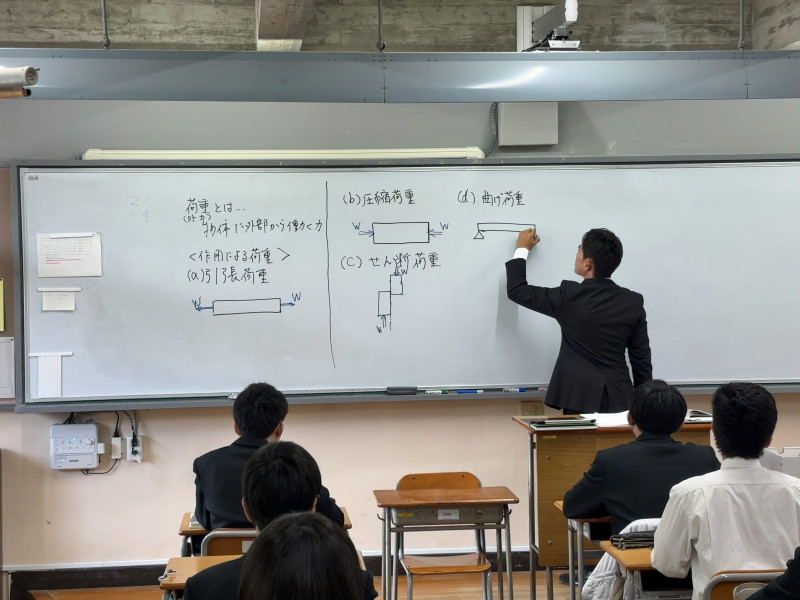 荷重とは…
(外力)
物体に外部から働く力
<作用による荷重>
(a)引張荷重
W
W
(b)圧縮荷重
W
W
(C)せん断荷重
W
W
(d)曲げ荷重